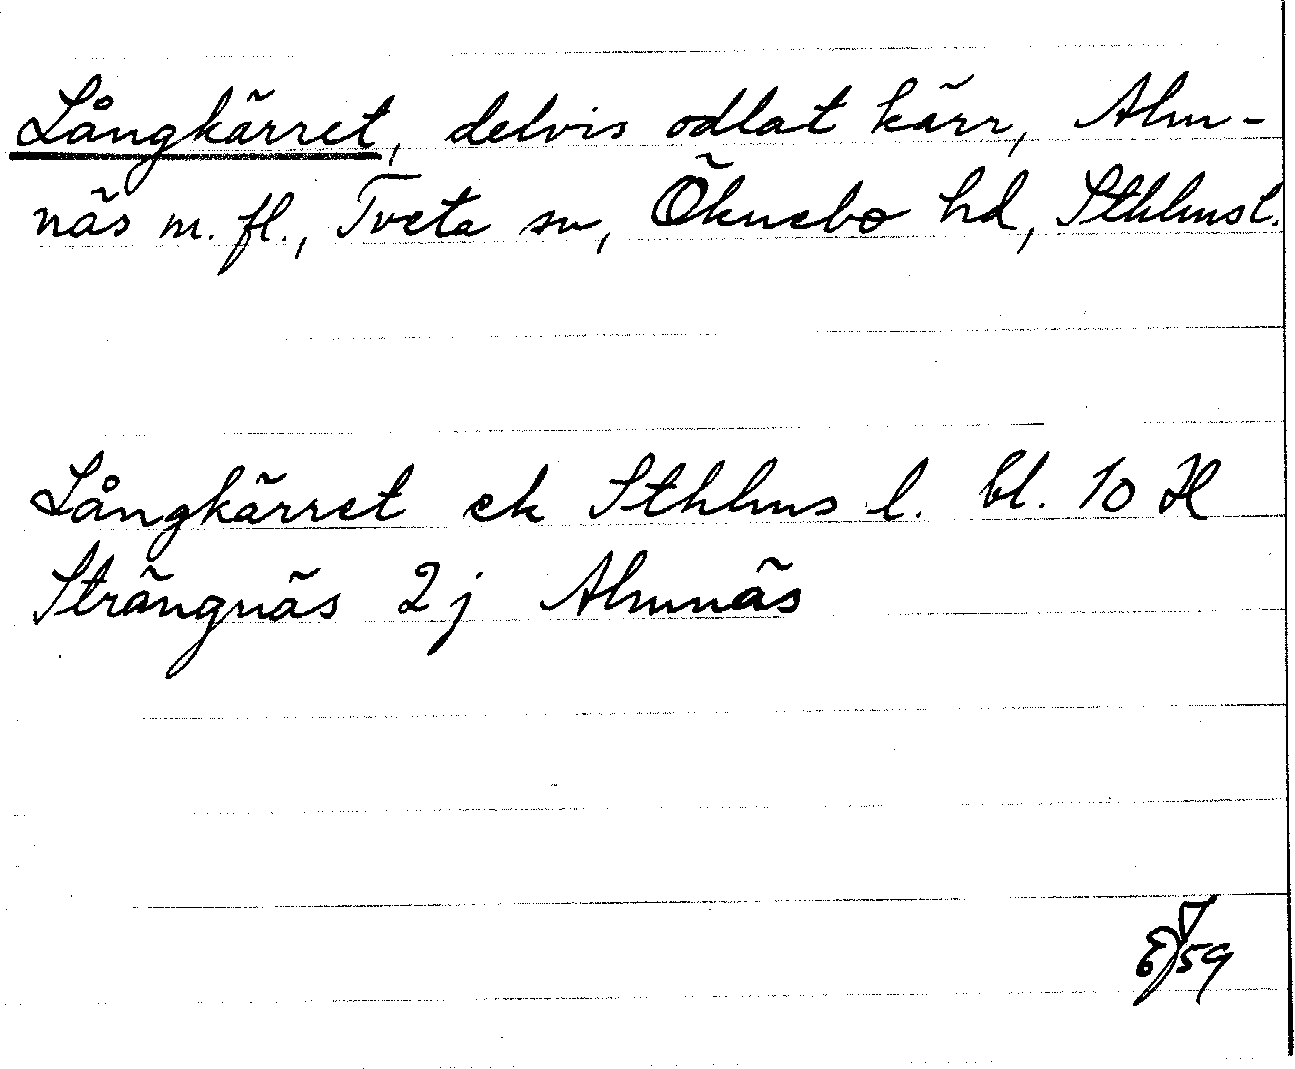 Långkärret, delvis odlat kärr, Alm-
näs m. fl., Tveta sn, Öknebo hd, Sthlmsl.
Långkärret ek Sthlms l. bl. 10 H
Strängnäs 2j Almnäs